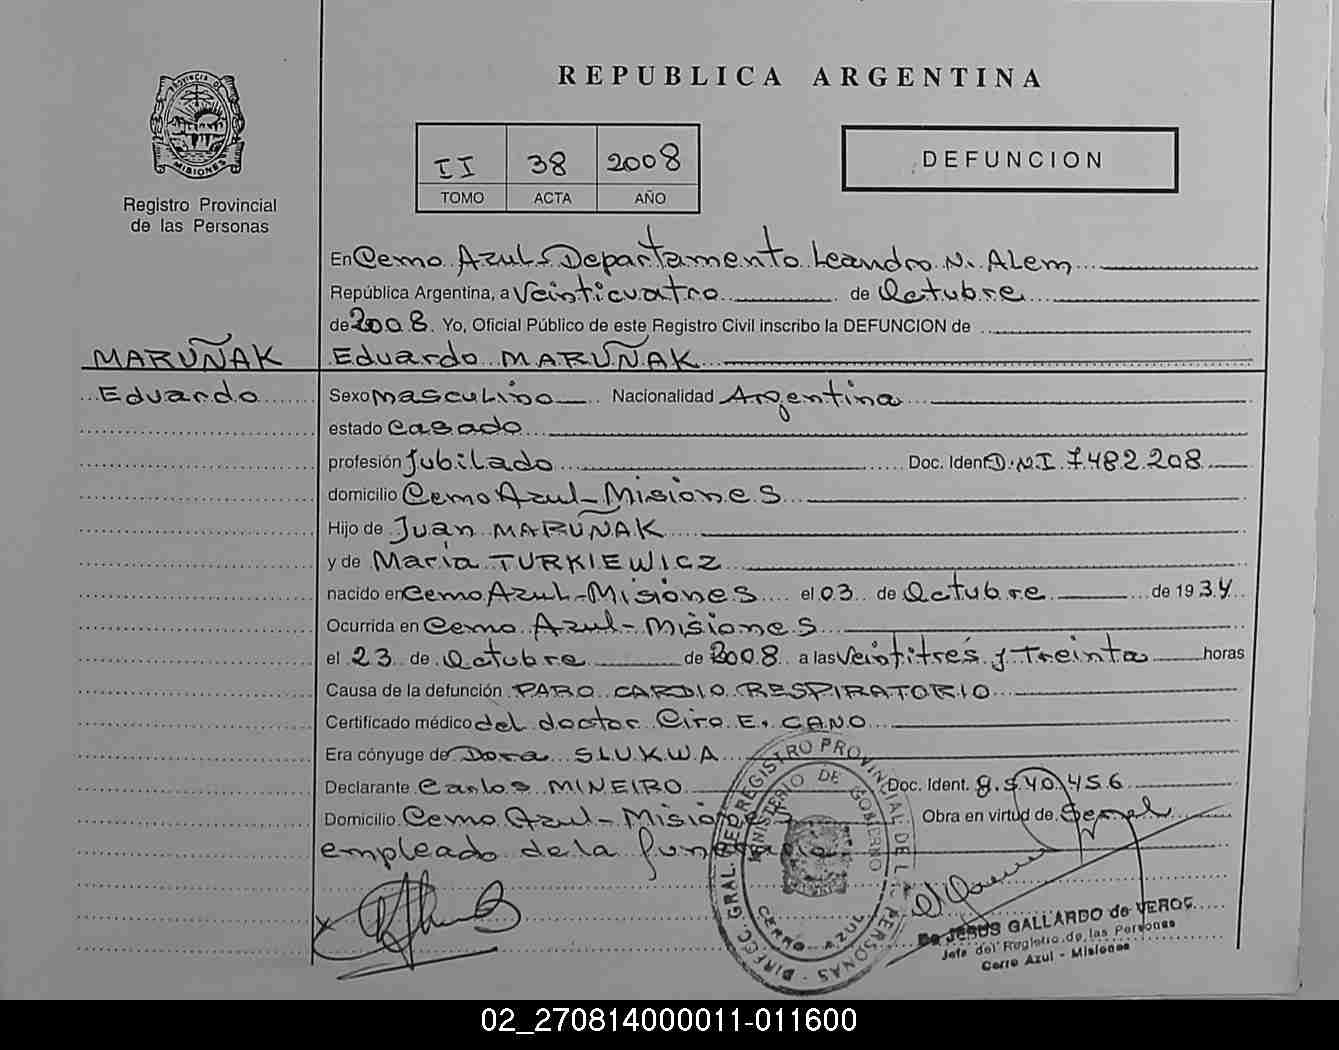 REPUBLICA ARGENTINA
PROVINCIA DE
MISIONES
Registro Provincial
de las Personas
II 38 2008
TOMO ACTA AÑO
DEFUNCION
En Cerro Azul - Departamento Leandro N. Alem
República Argentina, a Veinticuatro de Octubre
de 2008. Yo, Oficial Público de este Registro Civil inscribo la DEFUNCION de
MARUÑAK Eduardo MARUÑAK
Eduardo Sexo masculino Nacionalidad Argentina
estado Casado
profesión Jubilado Doc. Ident. D.N.I. 7482.208
domicilio Cerro Azul - Misiones
Hijo de Juan MARUÑAK
y de María TURKIEWICZ
nacido en Cerro Azul - Misiones el 03 de Octubre de 1934
Ocurrida en Cerro Azul - Misiones
el 23 de Octubre de 2008 a las Veintitrés y Treinta horas
Causa de la defunción PARO CARDIO RESPIRATORIO
Certificado médico del doctor Ciro E. CANO
Era cónyuge de Dora SLUKWA
Declarante Carlos MINEIRO Doc. Ident. 8.540.456
Domicilio Cerro Azul - Misiones Obra en virtud de Ser el
empleado de la funeraria
DIREC. GRAL. DEL REGISTRO PROVINCIAL DE LAS PERSONAS
MINISTERIO DE GOBIERNO
CERRO AZUL
De JESUS GALLARDO de VEROC
Jefe del Registro de las Personas
Cerro Azul - Misiones
02_270814000011-011600